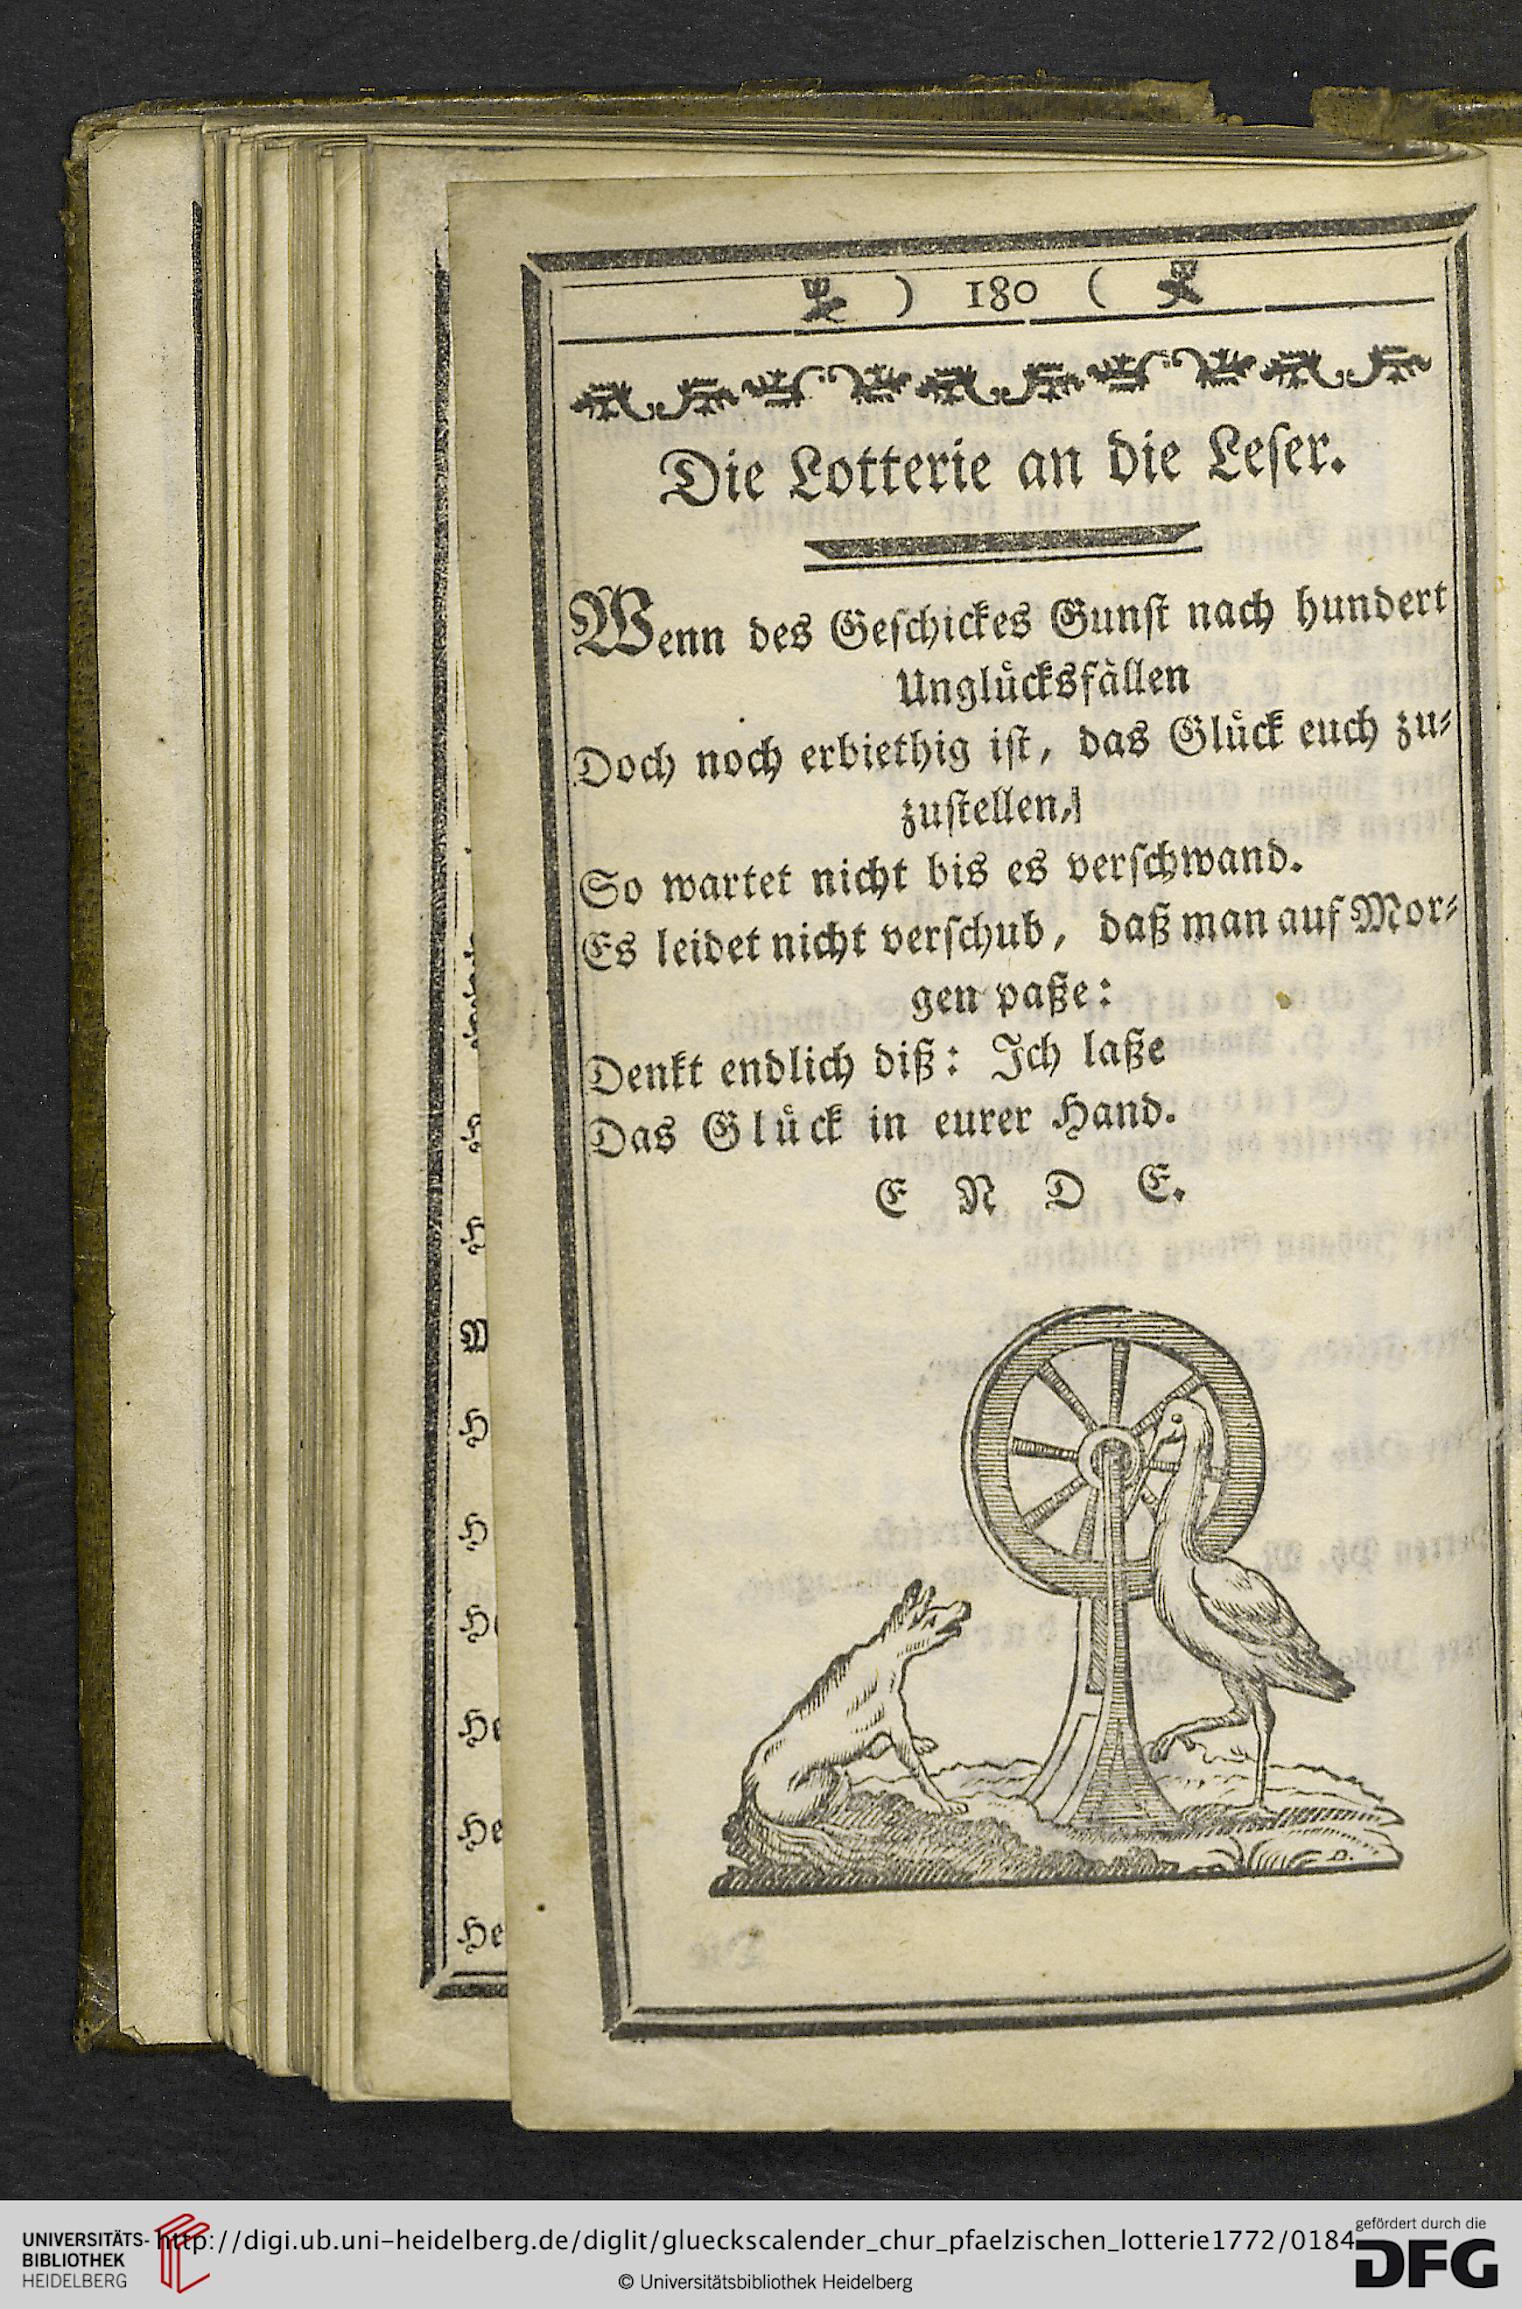 ) 180 (
Die Lotterie an die Leser.
Wenn des Geschickes Gunst nach hundert
Unglücksfällen
Doch noch erbiethig ist, das Glück euch zu-
zustellen,
So wartet nicht bis es verschwand.
Es leidet nicht verschub, daß man auf Mor-
gen paße:
Denkt endlich diß: Ich laße
Das Glück in eurer Hand.
E N D E.
D.
H
H
N
H
H
He
He
He
UNIVERSITÄTS-
BIBLIOTHEK
HEIDELBERG
http://digi.ub.uni-heidelberg.de/diglit/glueckscalender_chur_pfaelzischen_lotterie1772/0184
© Universitätsbibliothek Heidelberg
gefördert durch die
DFG